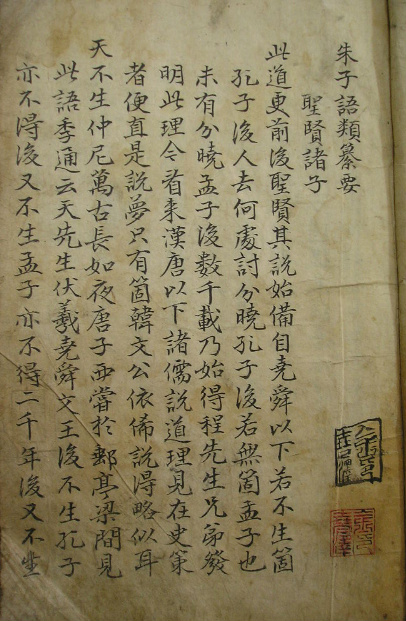 朱子語類纂要
聖賢諸子
此道更前後聖賢其說始備自堯舜以下若不生箇
孔子後人去何處討分曉孔子後若無箇孟子也
未有分曉孟子後數千載乃始得程先生兄弟發
明此理今看来漢唐以下諸儒說道理見在史策
者便直是說夢只有箇韓文公依俙說得略似耳
天不生仲尼萬古長如夜唐子西嘗於郵亭梁間見
此語季通云天先生伏羲堯舜文王後不生孔子
亦不得後又不生孟子亦不得二千年後又不生